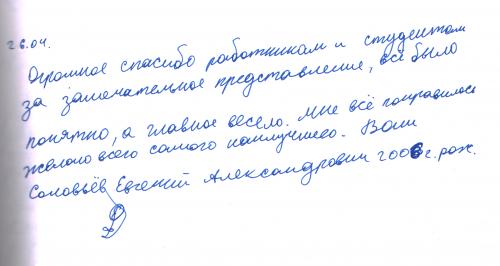 26.04.
Огромное спасибо работникам и студентам
за замечательное представление, всё было
понятно, а главное весело. Мне всё понравилось
желаю всего самого наилучшего. Вам
Соловьёв Евгений Александрович 2006г. рож.